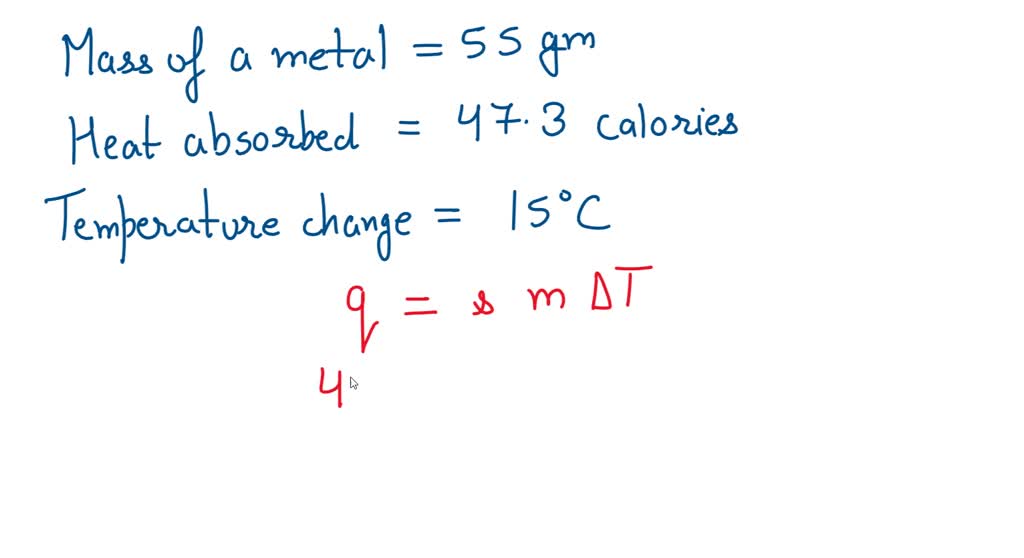 Mass of a metal = 55 gm
Heat absorbed = 47.3 calories
Temperature change = 15°C
q = s m ΔT
4